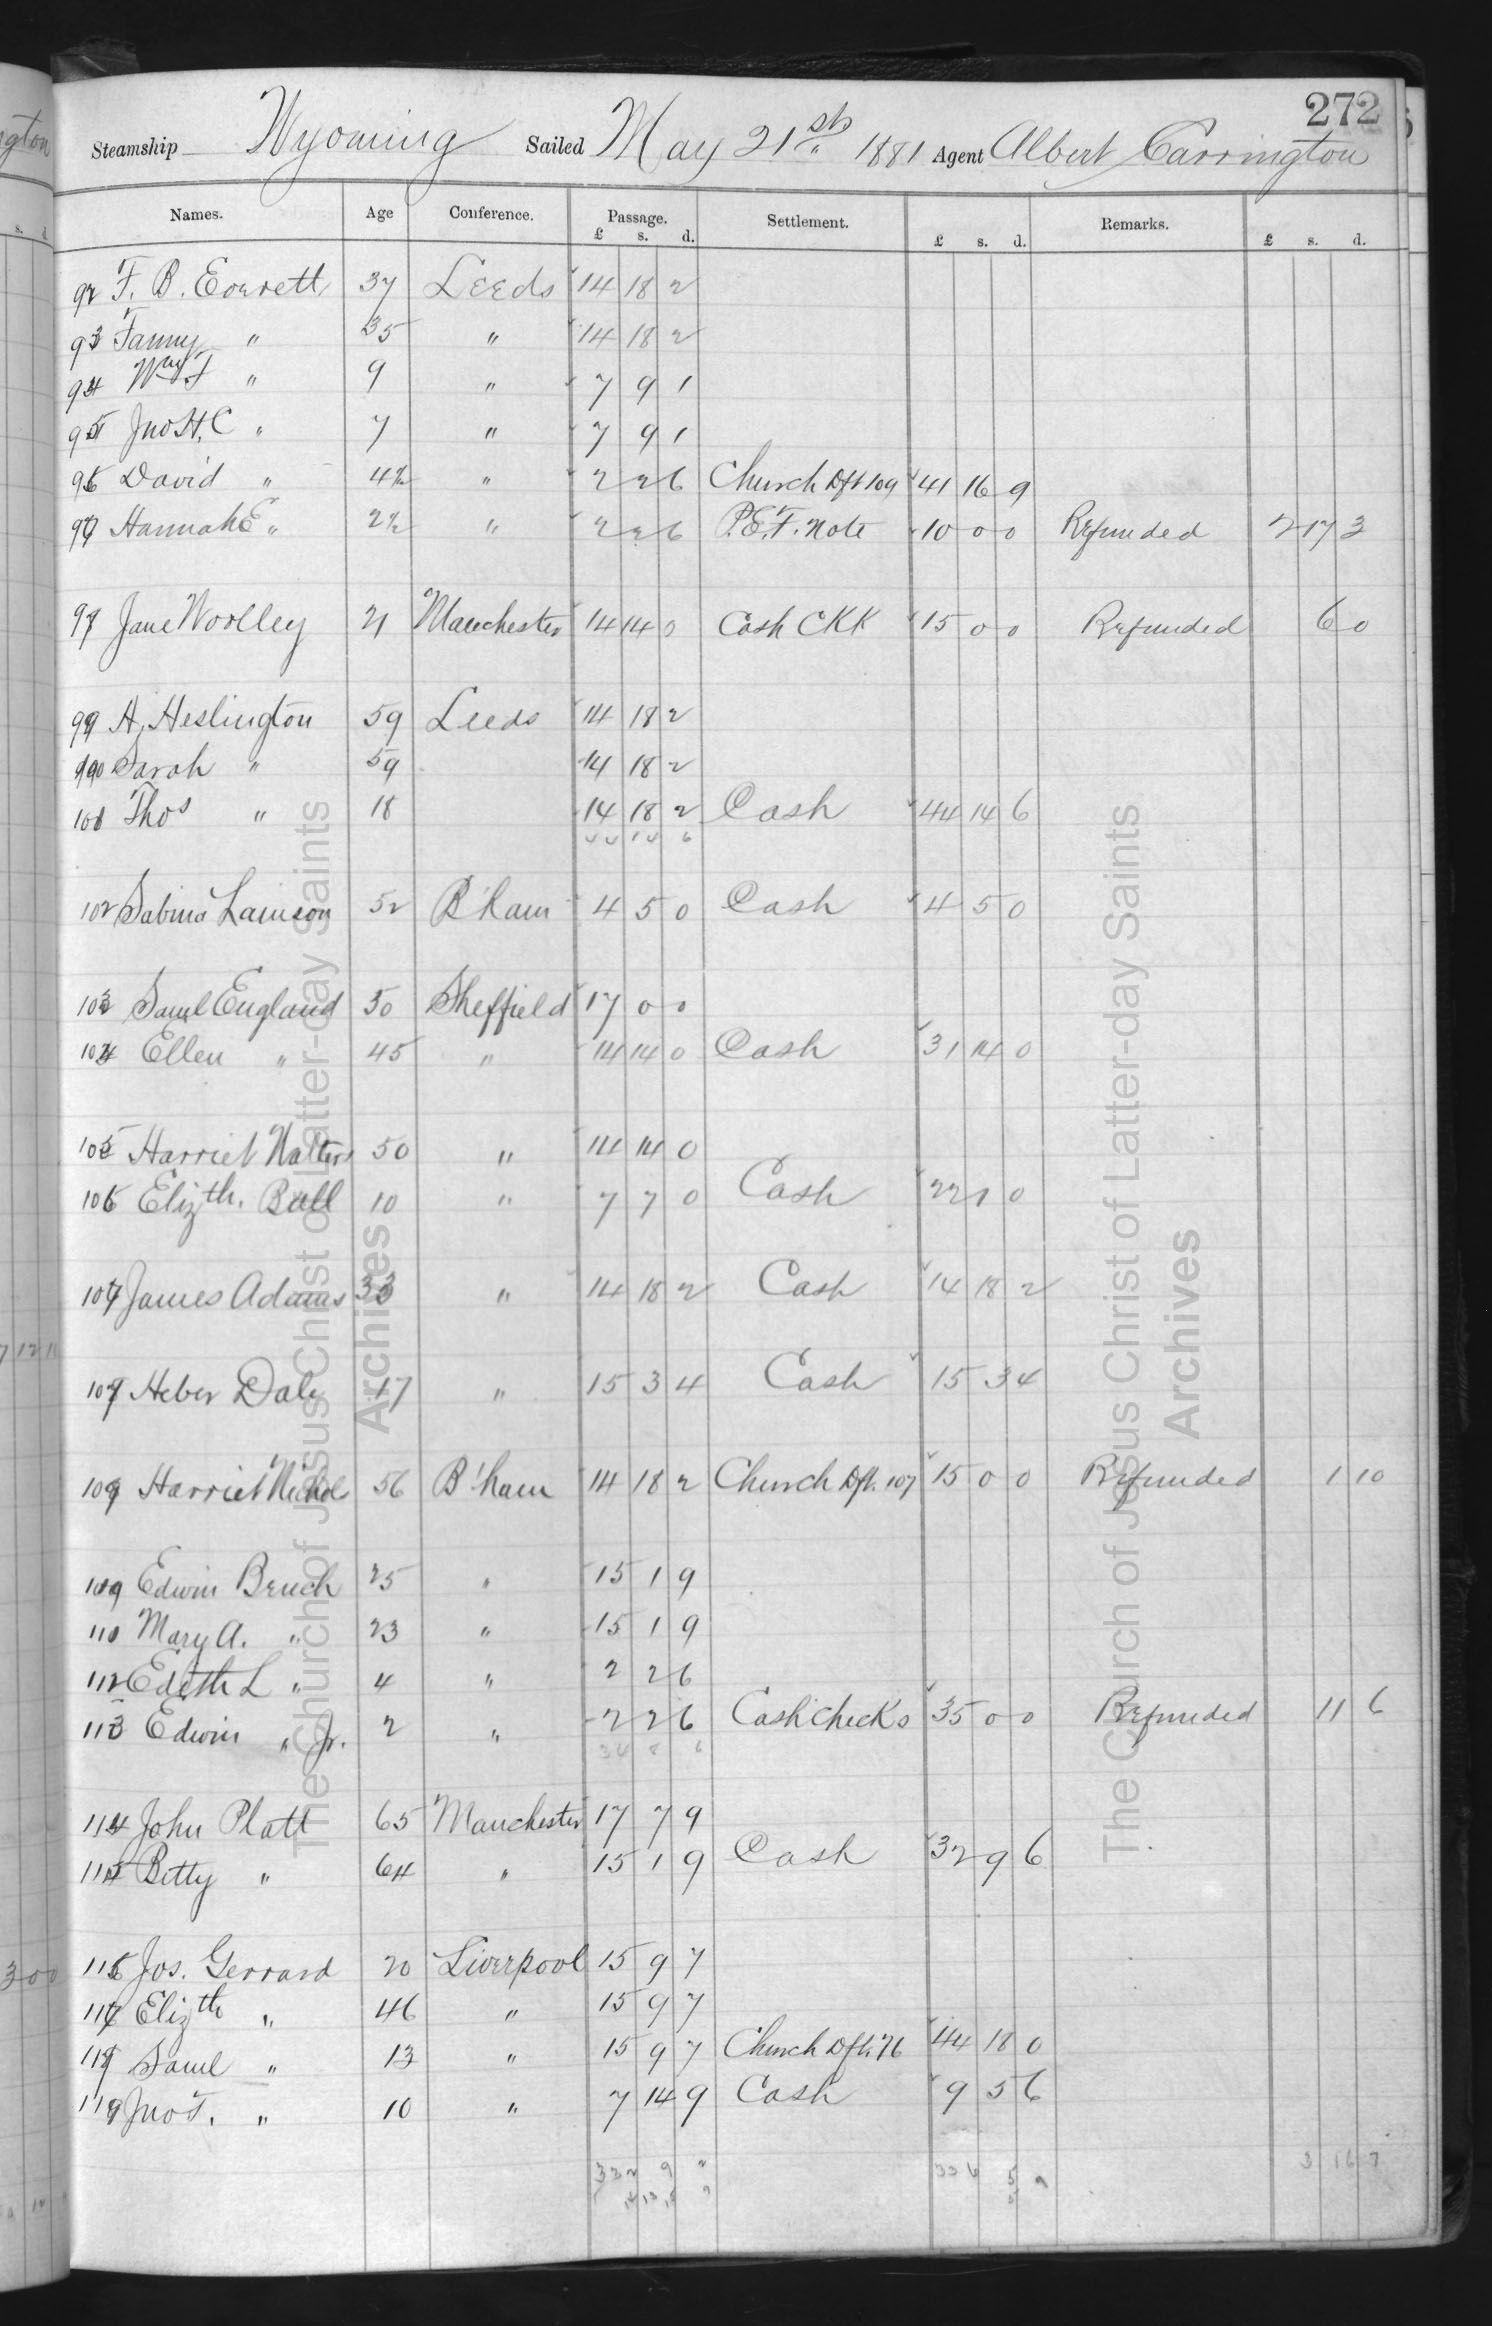 272
Steamship Wyoming Sailed May 21st 1881 Agent Albert Carrington
Names. Age Conference. Passage. Settlement. Remarks.
£ s. d. £ s. d. £ s. d.
92 F. B. Everett 37 Leeds 14 18 2
93 Fanny " 35 " 14 18 2
94 Wm F " 9 " 7 9 1
95 Jno H. C " 7 " 7 9 1
96 David " 4½ " 2 2 6 Church Dft 109 41 16 9
97 Hannah E " 2½ " 2 2 6 P.E.F. Note 10 0 0 Refunded 2 17 3
Jane Woolley 21 Manchester 14 14 0 Cash CKK 15 0 0 Refunded 6 0
99 H. Heslington 59 Leeds 14 18 2
Sarah " 59 14 18 2
101 Thos " 18 14 18 2 Cash 44 14 6
44 14 6
102 Sabina Lamson 52 B'ham 4 5 0 Cash 4 5 0
103 Saml England 50 Sheffield 17 0 0
104 Ellen " 45 " 14 14 0 Cash 31 14 0
105 Harriet Walters 50 " 14 14 0
106 Elizth. Ball 10 " 7 7 0 Cash 22 1 0
107 James Adams 33 " 14 18 2 Cash 14 18 2
Heber Dale 17 " 15 3 4 Cash 15 3 4
109 Harriet Nichols 56 B'ham 14 18 2 Church Dft. 107 15 0 0 Refunded 1 10
Edwin Bench 25 " 15 1 9
Mary A. " 23 " 15 1 9
112 Edith L " 4 " 2 2 6
113 Edwin " Jr. 2 " 2 2 6 Cash Checks 35 0 0 Refunded 11 6
34 8 6
114 John Platt 65 Manchester 17 7 9
115 Betty " 64 " 15 1 9 Cash 32 9 6
116 Jos. Gerrard 20 Liverpool 15 9 7
117 Elizth " 46 " 15 9 7
Saml " 13 " 15 9 7 Church Dft. 76 44 18 0
119 Jno T. " 10 " 7 14 9 Cash 9 5 6
332 9 2 336 5 9 3 16 7
The Church of Jesus Christ of Latter-day Saints
Archives
The Church of Jesus Christ of Latter-day Saints
Archives